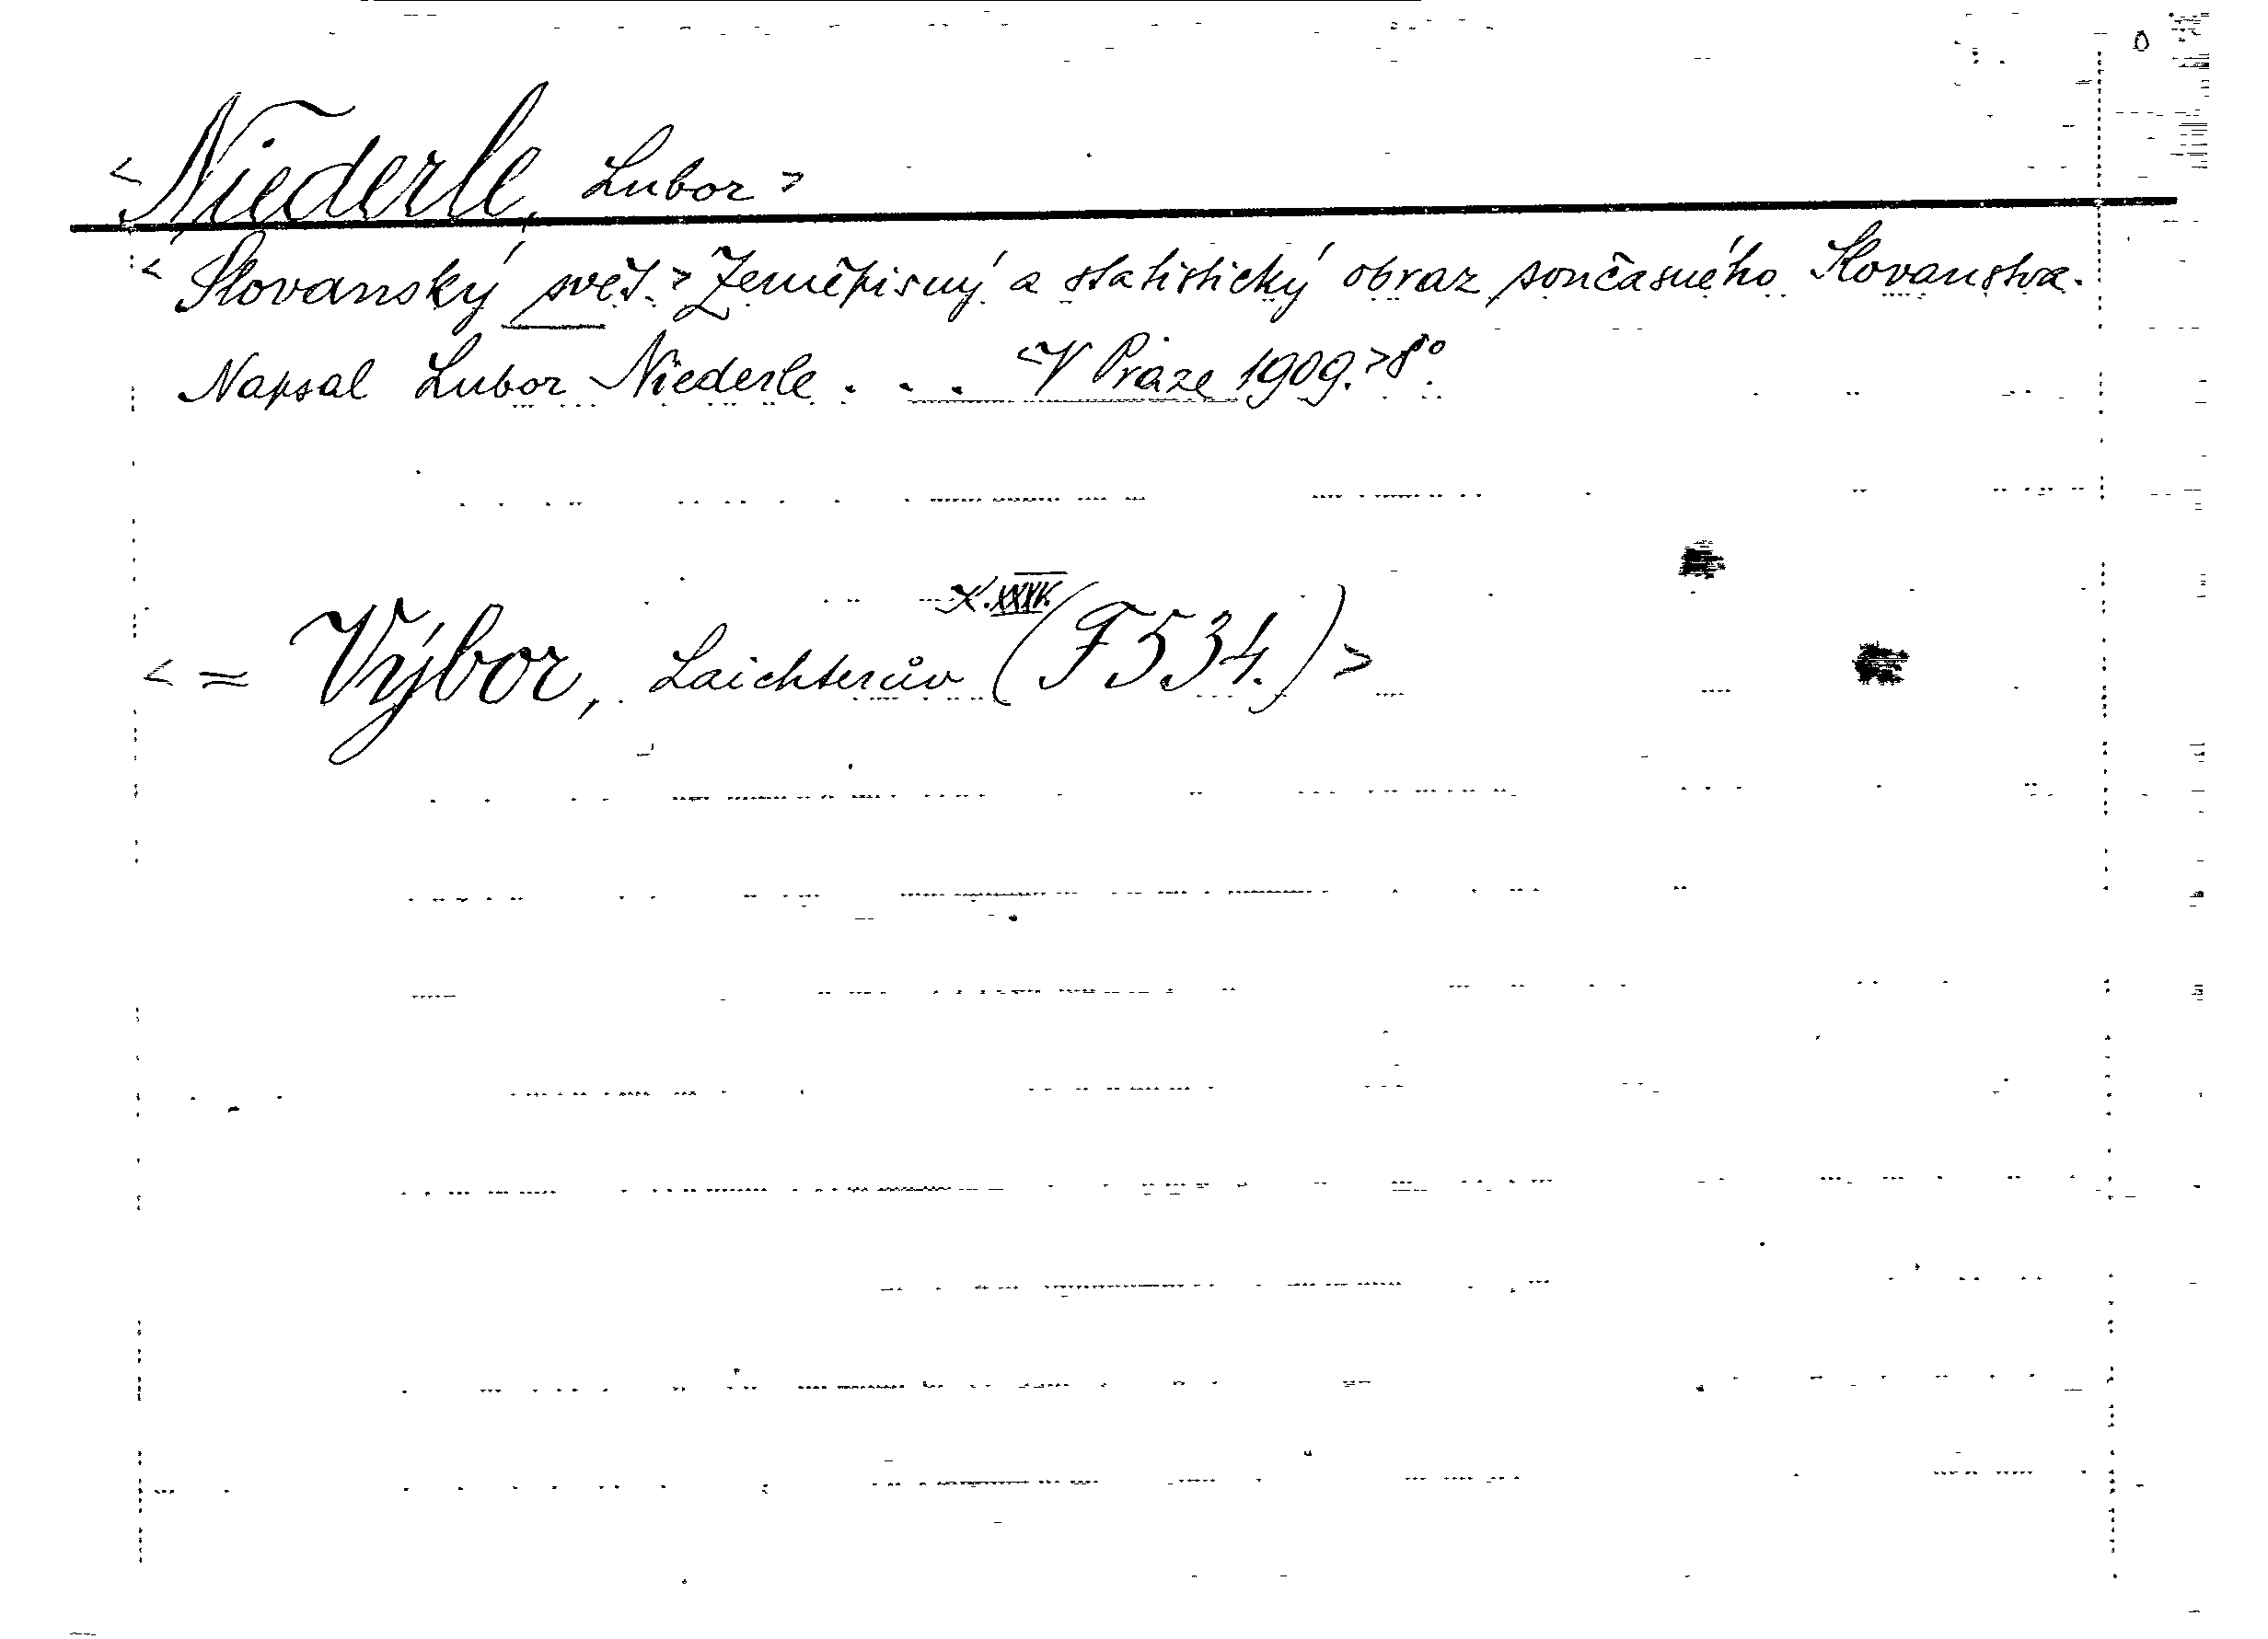 <Niederle, Lubor>
<Slovanský svět.> Zeměpisný a statistický obraz současného Slovanstva.
Napsal Lubor Niederle . . . <V Praze 1909.> 8°.
<= Výbor, Laichterův (F 534.)>